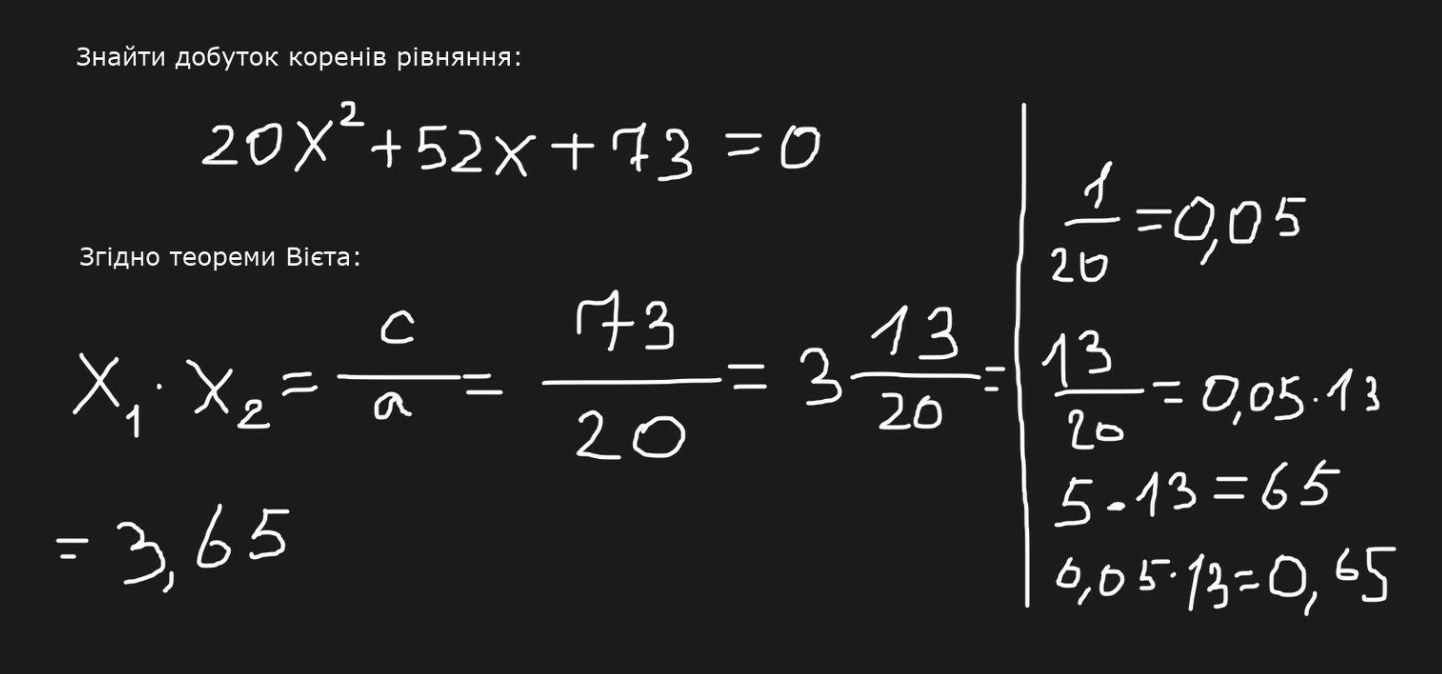 Знайти добуток коренів рівняння:
20x² + 52x + 73 = 0
Згідно теореми Вієта:
x₁ · x₂ = c/a = 73/20 = 3 13/20 =
= 3,65
1/20 = 0,05
13/20 = 0,05 · 13
5 · 13 = 65
0,05 · 13 = 0,65